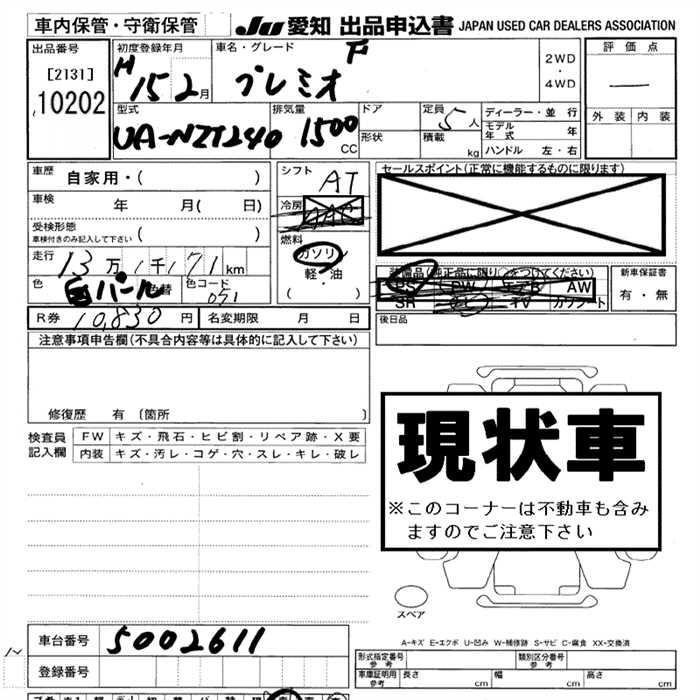 車内保管・守衛保管
JU 愛知 出品申込書 JAPAN USED CAR DEALERS ASSOCIATION
出品番号
[2131]
10202
初度登録年月
H 15 2月
車名・グレード
プレミオ F
2WD
・
4WD
評価点
外装 内装
型式
UA-NZT240
排気量
1500 CC
ドア
形状
定員 5人
積載 kg
ディーラー・並行
モデル年式 年
ハンドル 左・右
車歴 自家用・( )
車検 年 月( 日)
受検形態
車検付きのみ記入して下さい ( )
走行 13万1千171km
色 白パール 色替 色コード 051
シフト AT
冷房 AAC
燃料
ガソリン
軽・油
( )
セールスポイント(正常に機能するものに限ります)
装備品(純正品に限り○をつけてください)
PS PW エアB AW
SR ナビ TV カワシート
新車保証書
有・無
R券 10,830円 名変期限 月 日
後日品
注意事項申告欄(不具合内容等は具体的に記入して下さい)
修復歴 有 〔箇所 〕
検査員記入欄
FW キズ・飛石・ヒビ割・リペア跡・X要
内装 キズ・汚レ・コゲ・穴・スレ・キレ・破レ
現状車
※このコーナーは不動車も含み
ますのでご注意下さい
スペア
A-キズ E-エクボ U-凹み W-補修跡 S-サビ C-腐食 XX-交換済
車台番号 5002611
登録番号
形式指定番号 参考 類別区分番号 参考
車庫証明用 参考 長さ cm 幅 cm 高さ cm